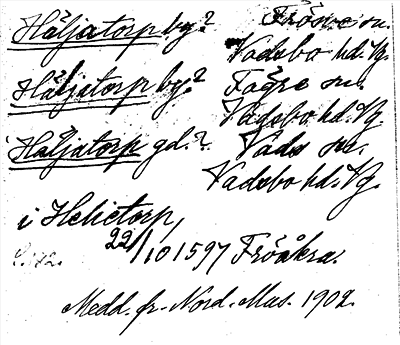 Häljatorp by? Frösve sn.
Vadsbo hd. Vg.
Häljatorp by? Fägre sn.
Vadsbo hd. Vg.
Häljatorp gd.? Vads sn.
Vadsbo hd. Vg.
i Helietorp,
22/10 1597 Fröåkra.
Medd. fr. Nord. Mus. 1902.